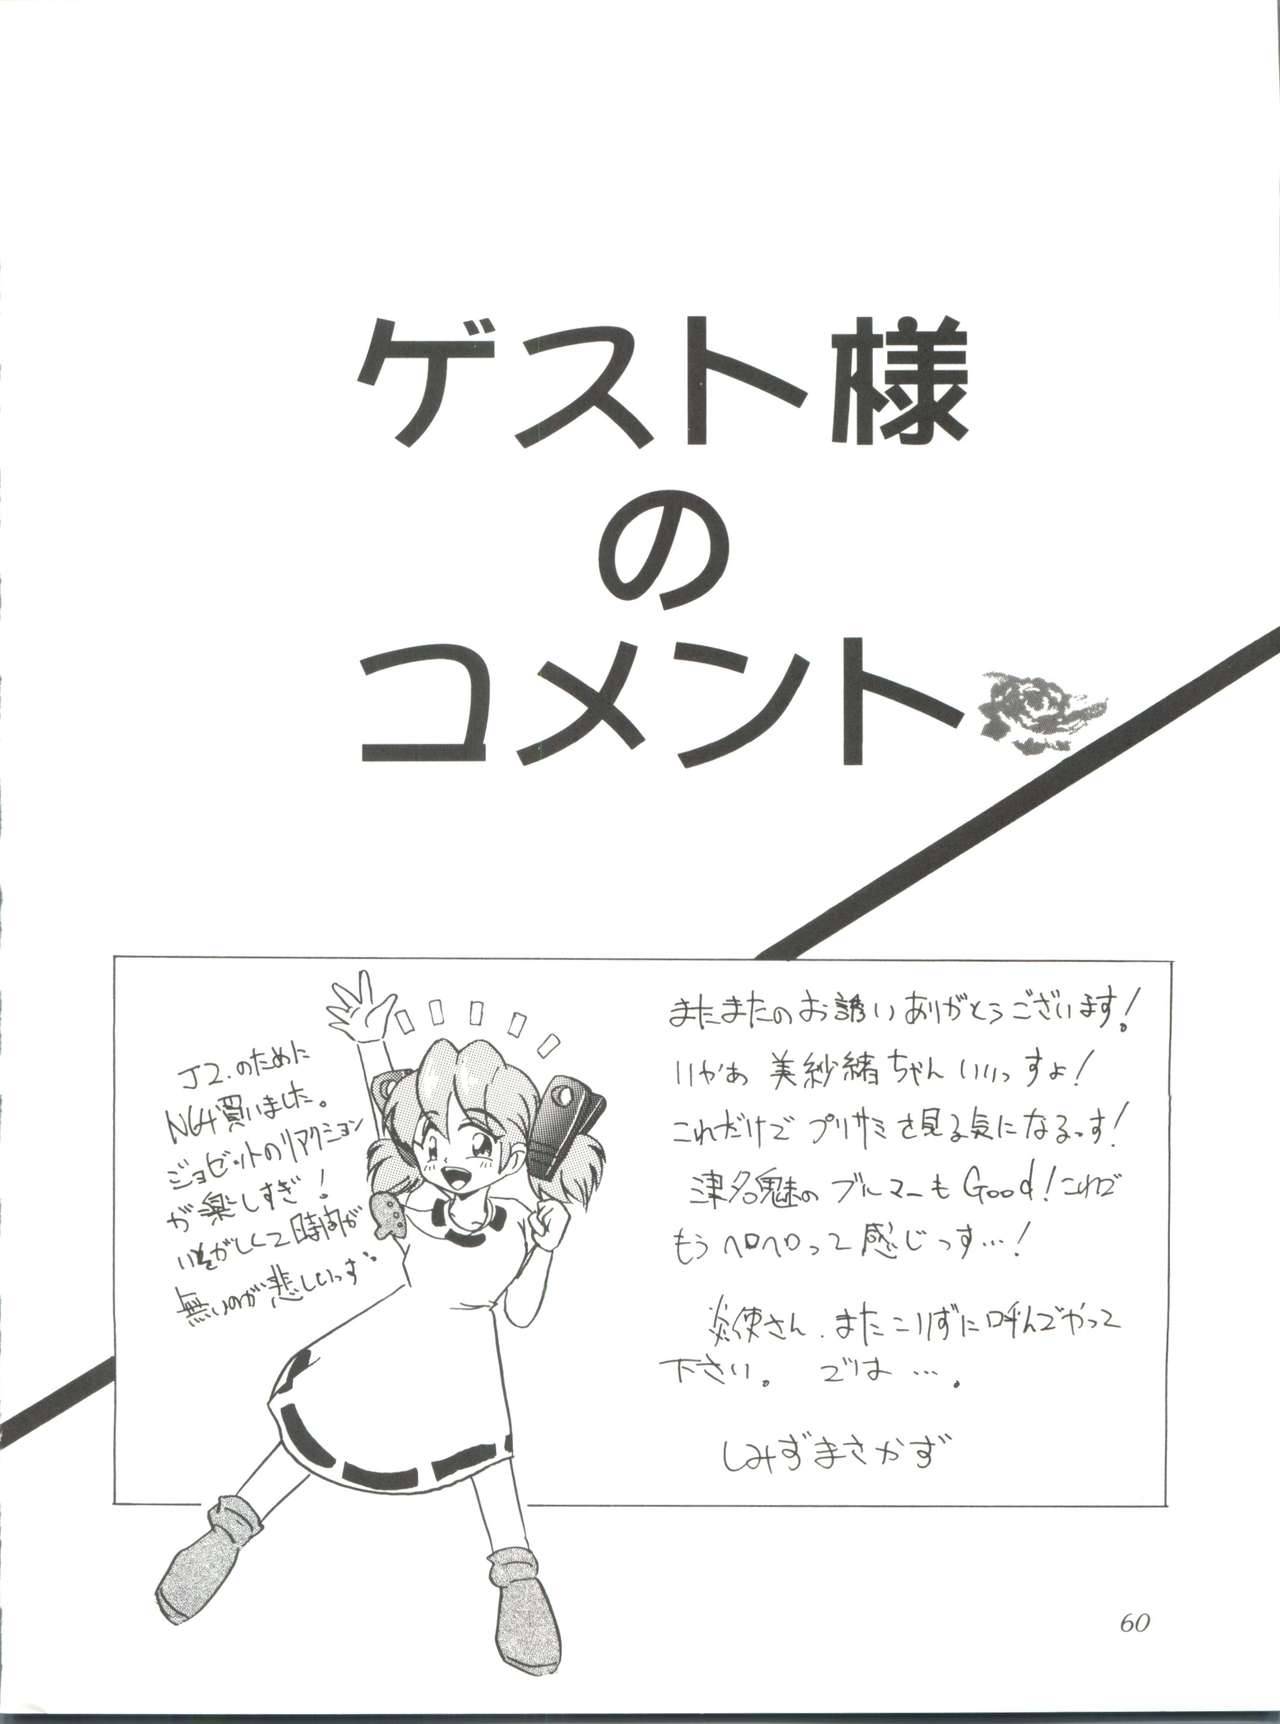 ゲスト様
の
コメント
J2.のために
N64買いました。
ジョゼットのリアクション
が楽しすぎ!
いそがしくて時間が
無いのが悲しいっす。
またまたのお誘いありがとうございます!
いやあ 美紗緒ちゃんいいっすよ!
これだけでプリサミを見る気になるっす!
津名魅のブルマーもGood!これで
もうヘロヘロって感じっす…!
炎使さん、またこりずに呼んでやって
下さい。 では…。
しみずまさかず
60